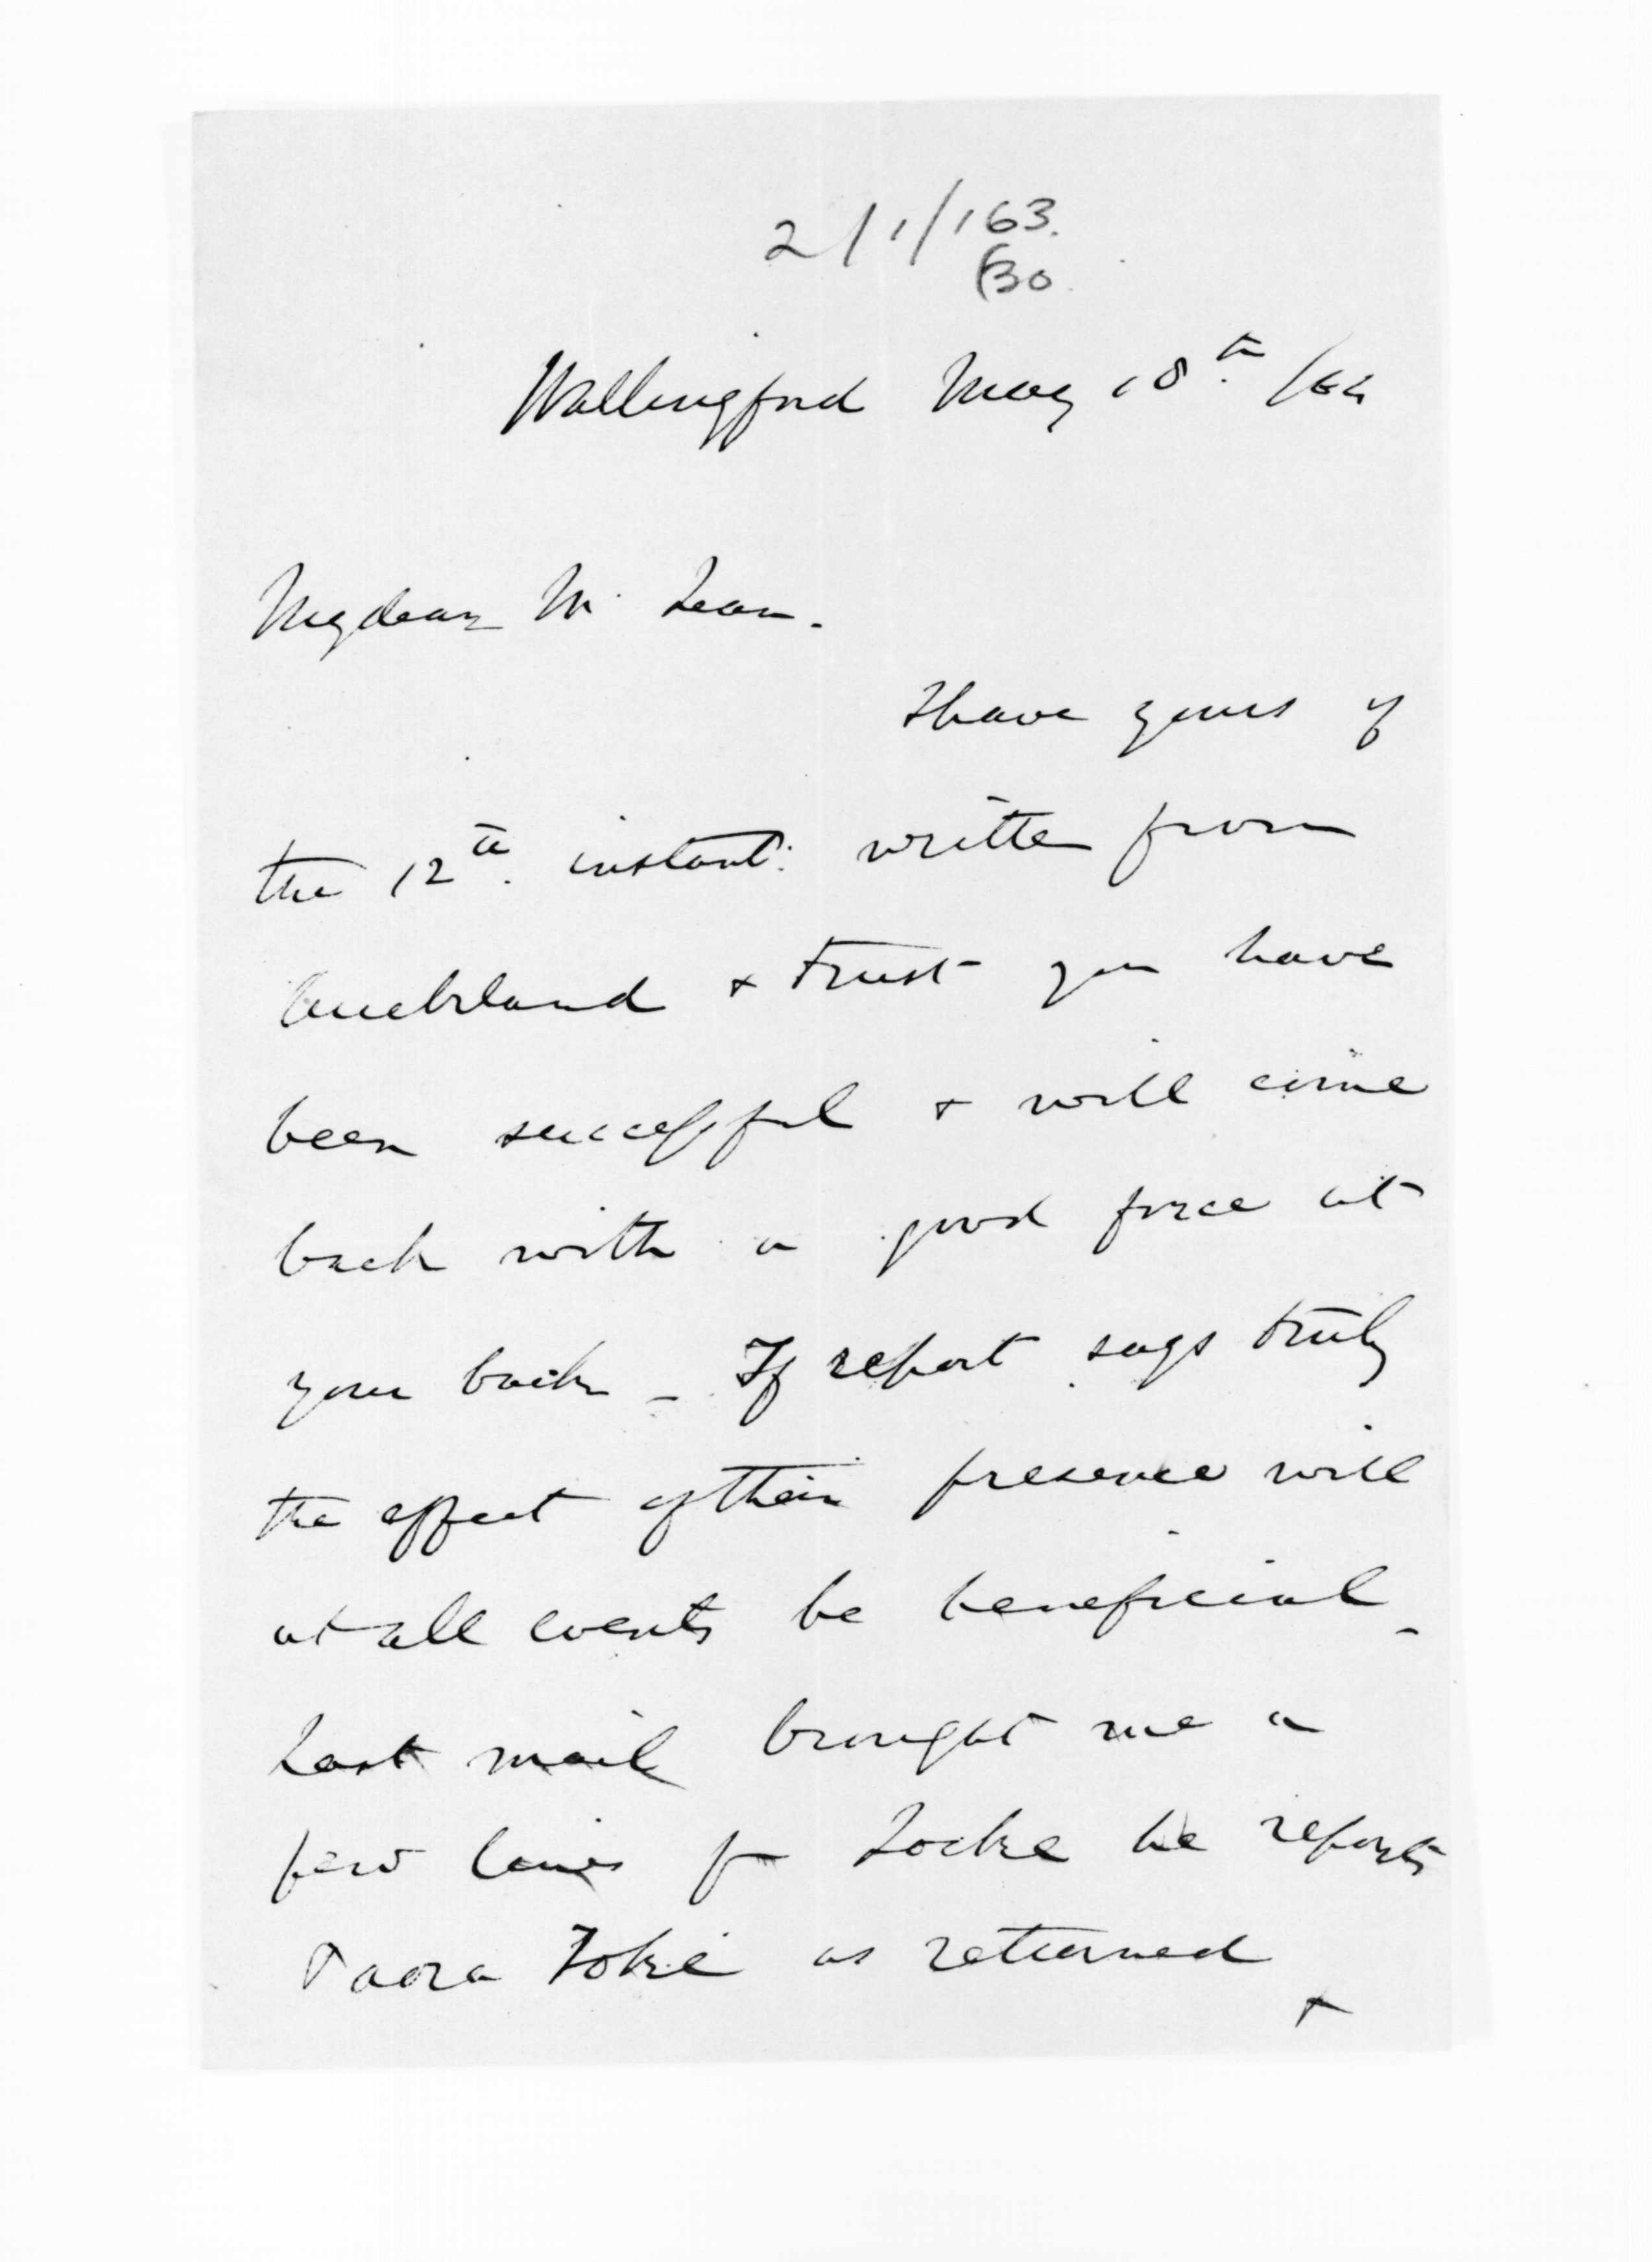 2/1/163.
(30
Wallingford May 18th /64
My dear McLean.
I have yours of
the 12th. instant: written from
Auckland & trust you have
been successful & will come
back with a good force at
your back _ If report says truly
the effect of their presence will
at all events be beneficial _
Last mail brought me a
few lines fm Locke he reports
Paora Toki as returned
&